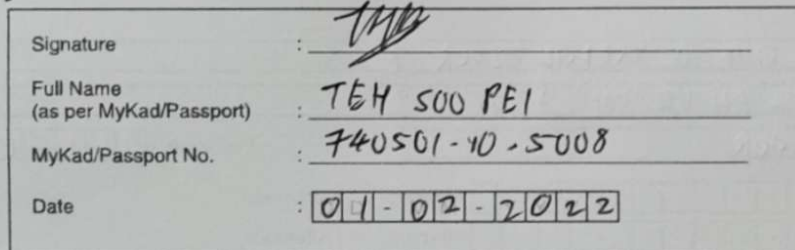 Signature :
Full Name
(as per MyKad/Passport) : TEH SOO PEI
MyKad/Passport No. : 740501-10-5008
Date : 01-02-2022